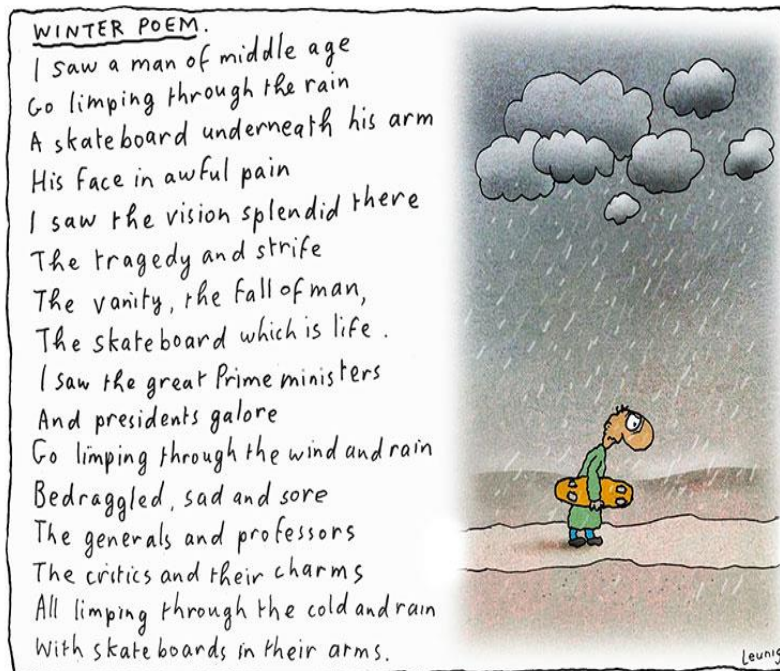 WINTER POEM.
I saw a man of middle age
Go limping through the rain
A skateboard underneath his arm
His face in awful pain
I saw the vision splendid there
The tragedy and strife
The vanity, the fall of man,
The skateboard which is life.
I saw the great Prime ministers
And presidents galore
Go limping through the wind and rain
Bedraggled, sad and sore
The generals and professors
The critics and their charms
All limping through the cold and rain
With skateboards in their arms.